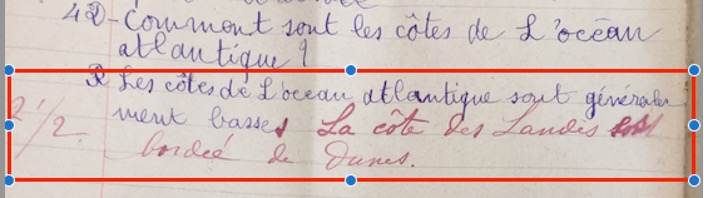 42- Comment sont les côtes de L'océan
atlantique?
R Les côtes de L'océan atlantique sont générale
ment basses La côte des Landes est
2 1/2. bordée de dunes.